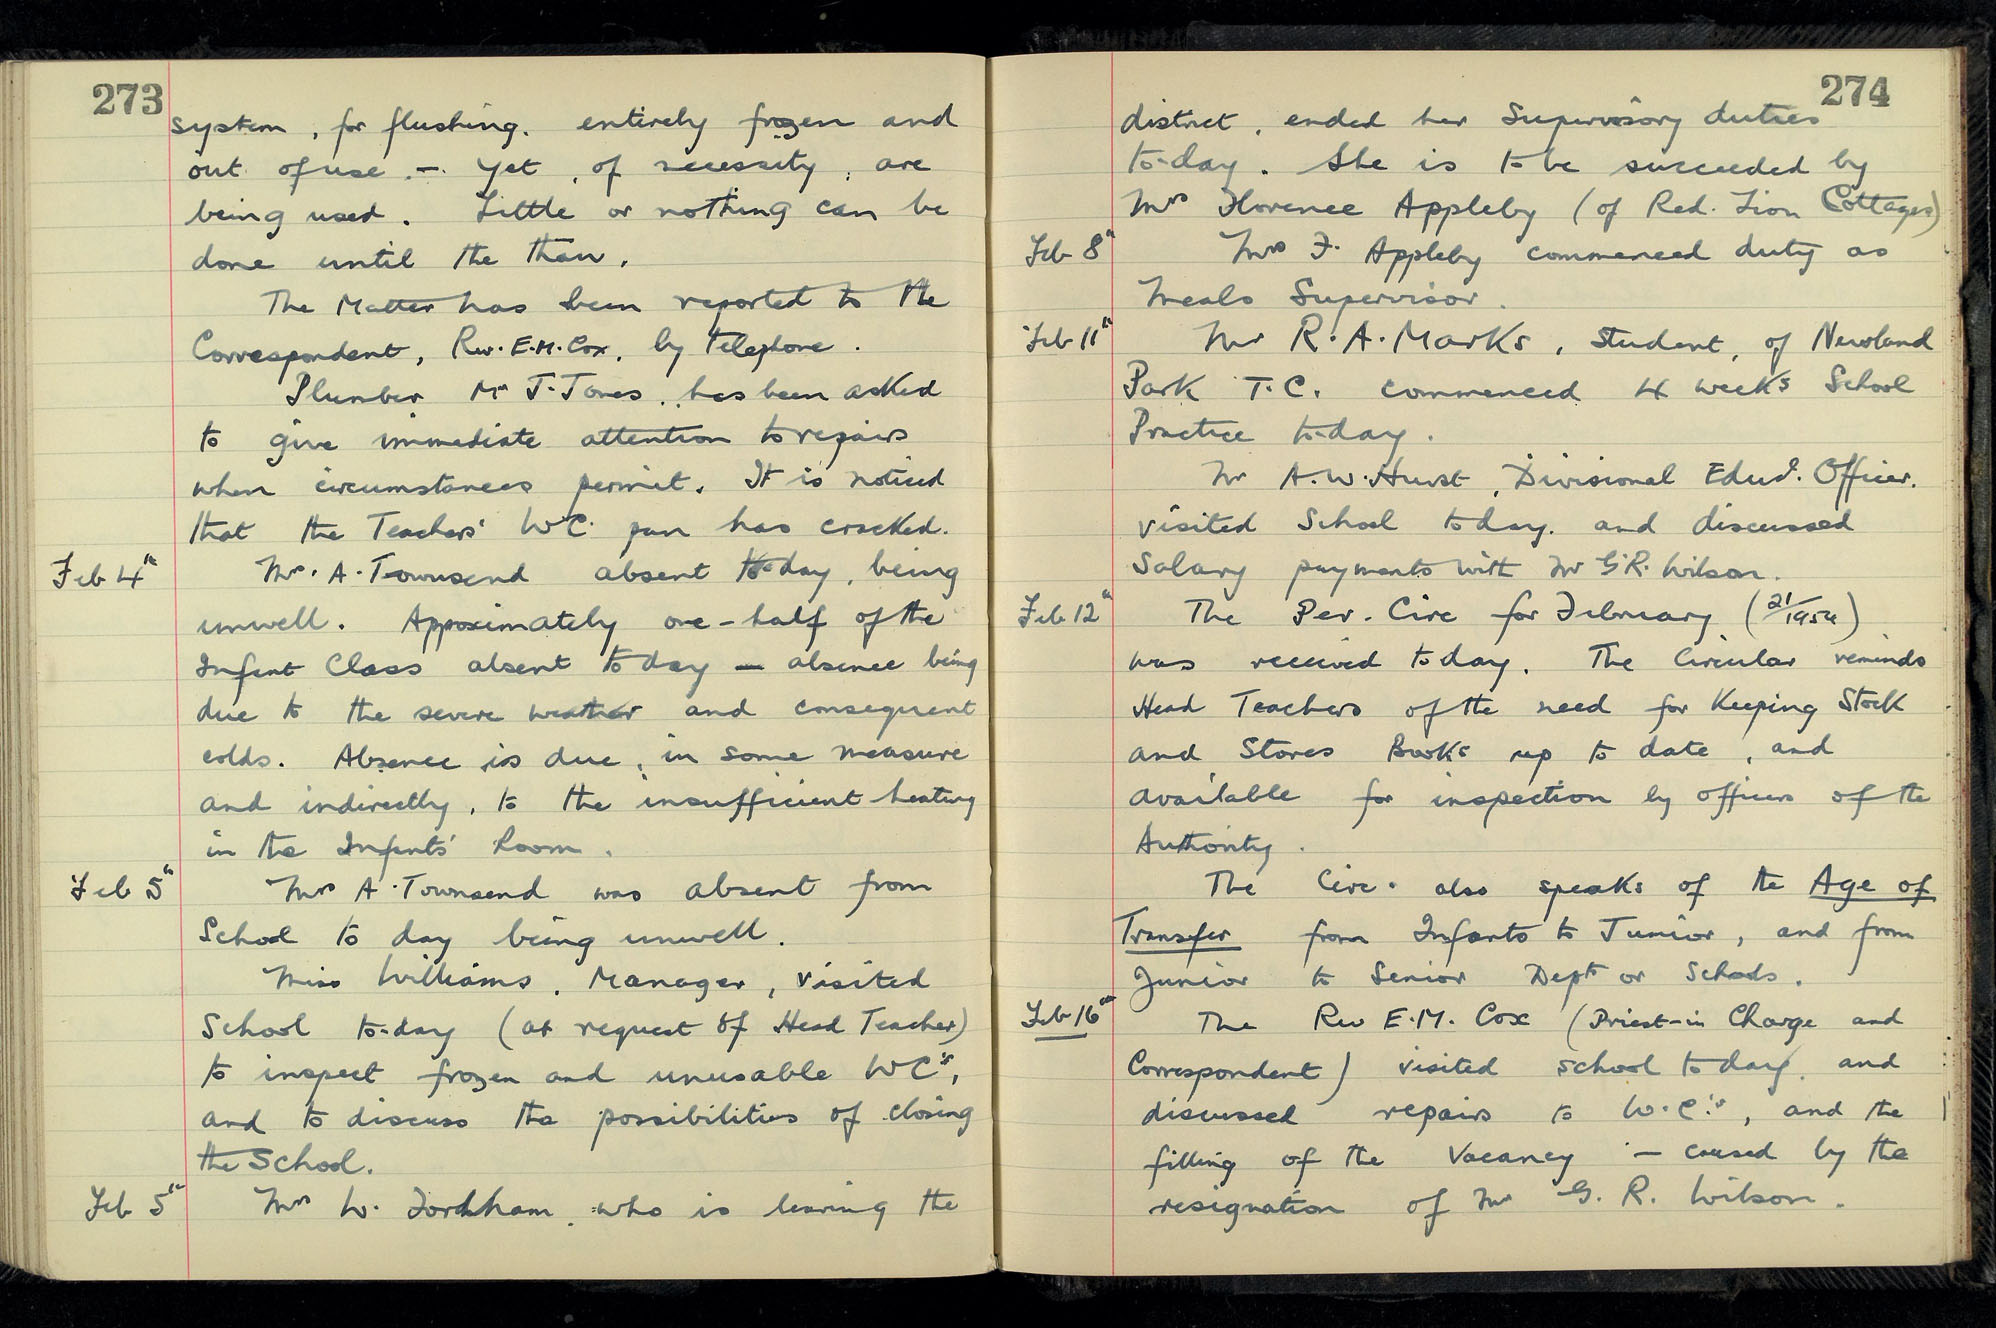 273
system, for flushing. entirely frozen and
out of use. — Yet, of necessity, are
being used. Little or nothing can be
done until the thaw.
The Matter has been reported to the
Correspondent, Rev. E.M. Cox, by telephone.
Plumber Mr J. Jones, has been asked
to give immediate attention to repairs
when circumstances permit. It is noticed
that the Teachers' WC. pan has cracked.
Feb 4th Mrs. A. Townsend absent to-day, being
unwell. Approximately one-half of the
Infant Class absent today — absence being
due to the severe weather and consequent
colds. Absence is due, in some measure
and indirectly, to the insufficient heating
in the Infants' Room.
Feb 5th Mrs A. Townsend was absent from
School to day being unwell.
Miss Williams, Manager, visited
School to-day (at request of Head Teacher)
to inspect frozen and unusable WC's,
and to discuss the possibilities of closing
the School.
Feb 5th Mrs W. Fordham, who is leaving the
274
district, ended her Supervisory duties
to-day. She is to be succeeded by
Mrs Florence Appleby (of Red. Lion Cottages)
Feb 8th Mrs F. Appleby commenced duty as
Meals Supervisor.
Feb 11th Mr R.A. Marks, Student, of Newland
Park T.C. commenced 4 weeks School
Practice to-day.
Mr A.W. Hurst, Divisional Educ. Officer.
visited School today. and discussed
Salary payments with Mr G.R. Wilson.
Feb 12th The Per. Circ for February (21/1954)
was received today. The Circular reminds
Head Teachers of the need for Keeping Stock
and Stores Books up to date, and
available for inspection by officers of the
Authority.
The Circ. also speaks of the Age of
Transfer from Infants to Junior, and from
Junior to Senior Depts or Schools.
Feb 16th The Rev E.M. Cox (Priest-in Charge and
Correspondent) visited school today, and
discussed repairs to W.C.'s, and the
filling of the Vacancy — caused by the
resignation of Mr G. R. Wilson.